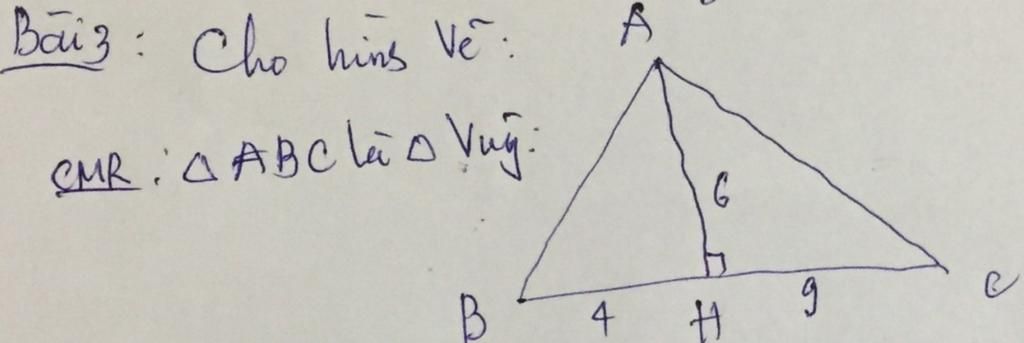 Bài 3: Cho hình Vẽ:
CMR: △ABC là △ Vug:
A
6
B 4 H 9 C